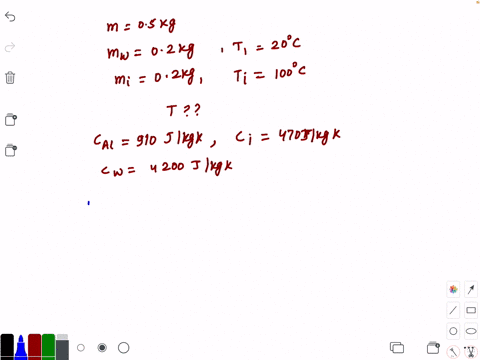 m = 0.5 kg
m_w = 0.2 kg , T_1 = 20°C
m_i = 0.2 kg, T_i = 100°C
T ??
C_Al = 910 J/kg K , C_i = 470 J/kg K
C_w = 4200 J/kg K